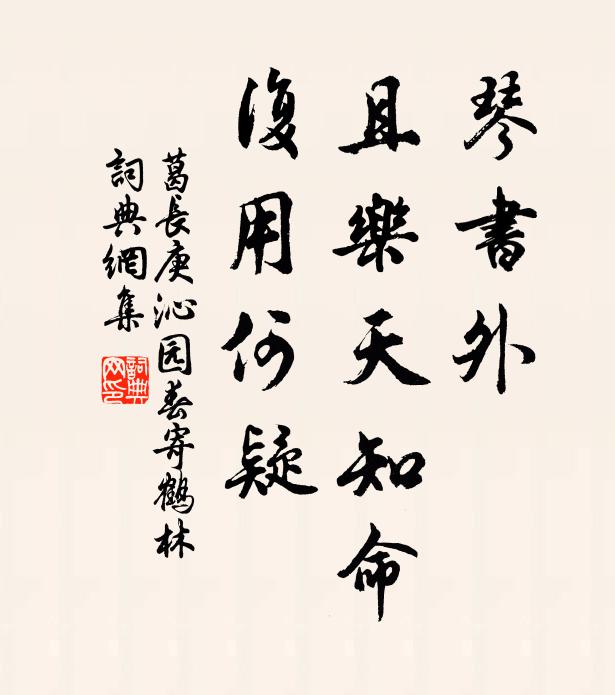 琴書外
且樂天知命
復用何疑
葛長庚沁园春寄鶴林
詞典網集
詞典網印